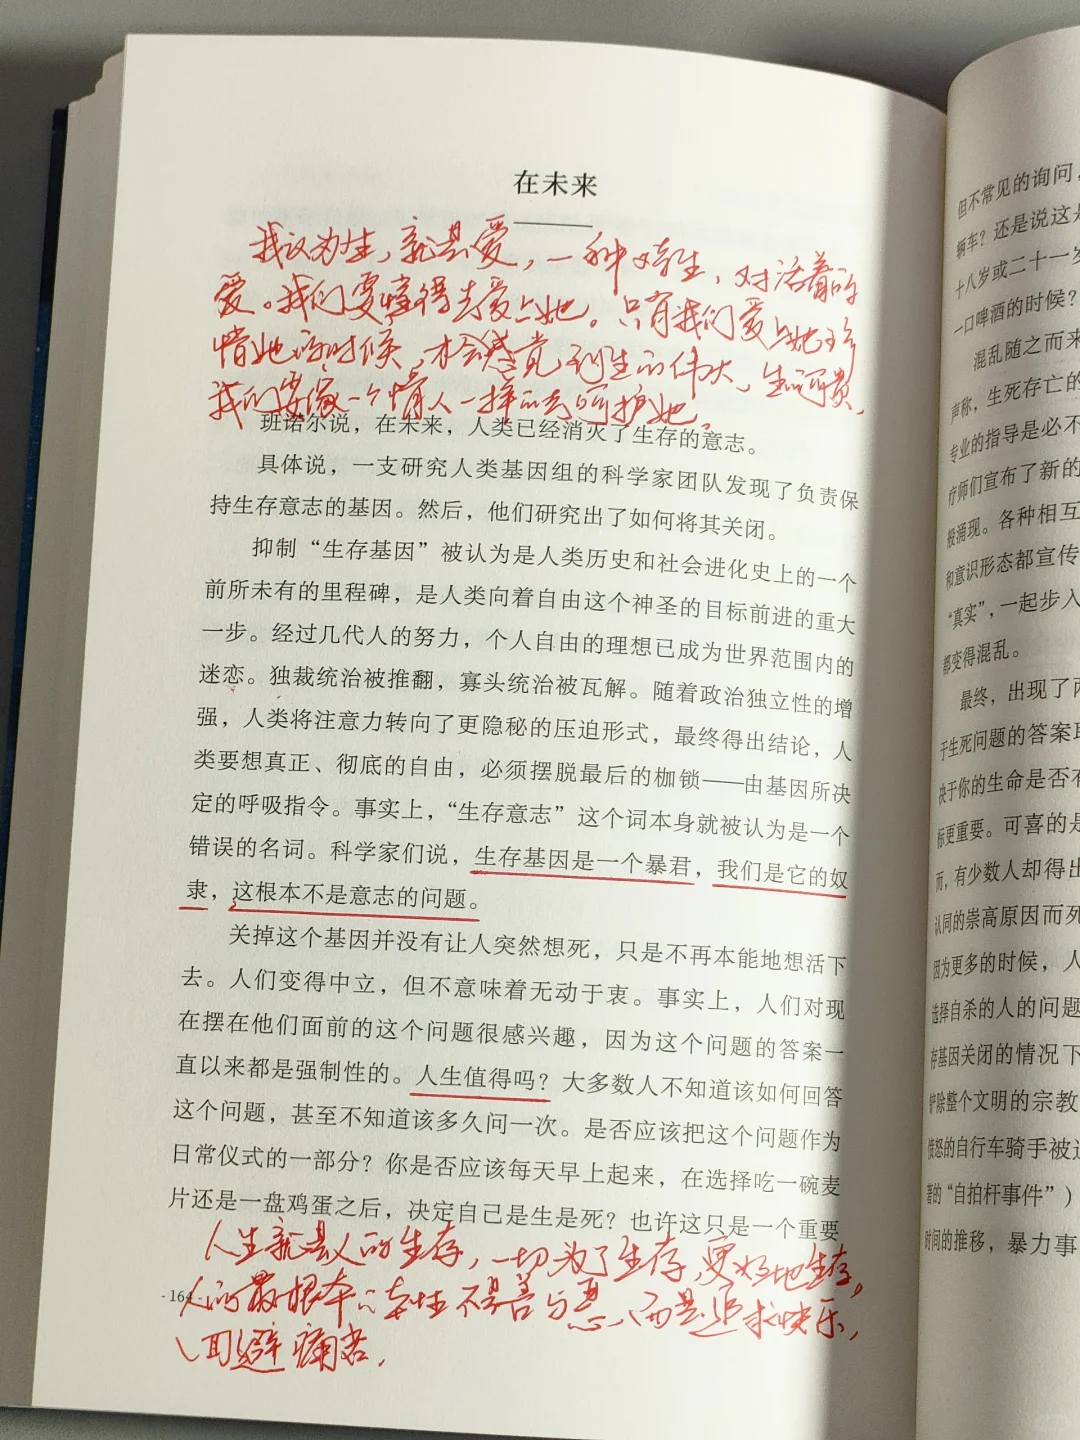 在未来
我认为生,就是爱,一种对生,对活着的
爱。我们要懂得去爱上她。只有我们爱上她
情她的时候,才会感觉到生的伟大、生的可贵,
我们要像一个情人一样的去呵护她。
班诺尔说,在未来,人类已经消灭了生存的意志。
具体说,一支研究人类基因组的科学家团队发现了负责保
持生存意志的基因。然后,他们研究出了如何将其关闭。
抑制“生存基因”被认为是人类历史和社会进化史上的一个
前所未有的里程碑,是人类向着自由这个神圣的目标前进的重大
一步。经过几代人的努力,个人自由的理想已成为世界范围内的
迷恋。独裁统治被推翻,寡头统治被瓦解。随着政治独立性的增
强,人类将注意力转向了更隐秘的压迫形式,最终得出结论,人
类要想真正、彻底的自由,必须摆脱最后的枷锁——由基因所决
定的呼吸指令。事实上,“生存意志”这个词本身就被认为是一个
错误的名词。科学家们说,生存基因是一个暴君,我们是它的奴
隶,这根本不是意志的问题。
关掉这个基因并没有让人突然想死,只是不再本能地想活下
去。人们变得中立,但不意味着无动于衷。事实上,人们对现
在摆在他们面前的这个问题很感兴趣,因为这个问题的答案一
直以来都是强制性的。人生值得吗?大多数人不知道该如何回答
这个问题,甚至不知道该多久问一次。是否应该把这个问题作为
日常仪式的一部分?你是否应该每天早上起来,在选择吃一碗麦
片还是一盘鸡蛋之后,决定自己是生是死?也许这只是一个重要
人生就是人的生存,一切为了生存,更好地生存,
人的最根本的本性不是善与恶、而是追求快乐,
回避痛苦.
- 164 -
但不常见的询问,
辆车?还是说这是
十八岁或二十一岁
一口啤酒的时候?
混乱随之而来
声称,生死存亡的
专业的指导是必不
疗师们宣布了新的
般涌现。各种相互
和意识形态都宣传
“真实”,一起步入
都变得混乱。
最终,出现了两
于生死问题的答案取
决于你的生命是否有
标更重要。可喜的是
而,有少数人却得出
认同的崇高原因而死
因为更多的时候,人
选择自杀的人的问题
存基因关闭的情况下
铲除整个文明的宗教
愤怒的自行车骑手被迫
著的“自拍杆事件”)
时间的推移,暴力事